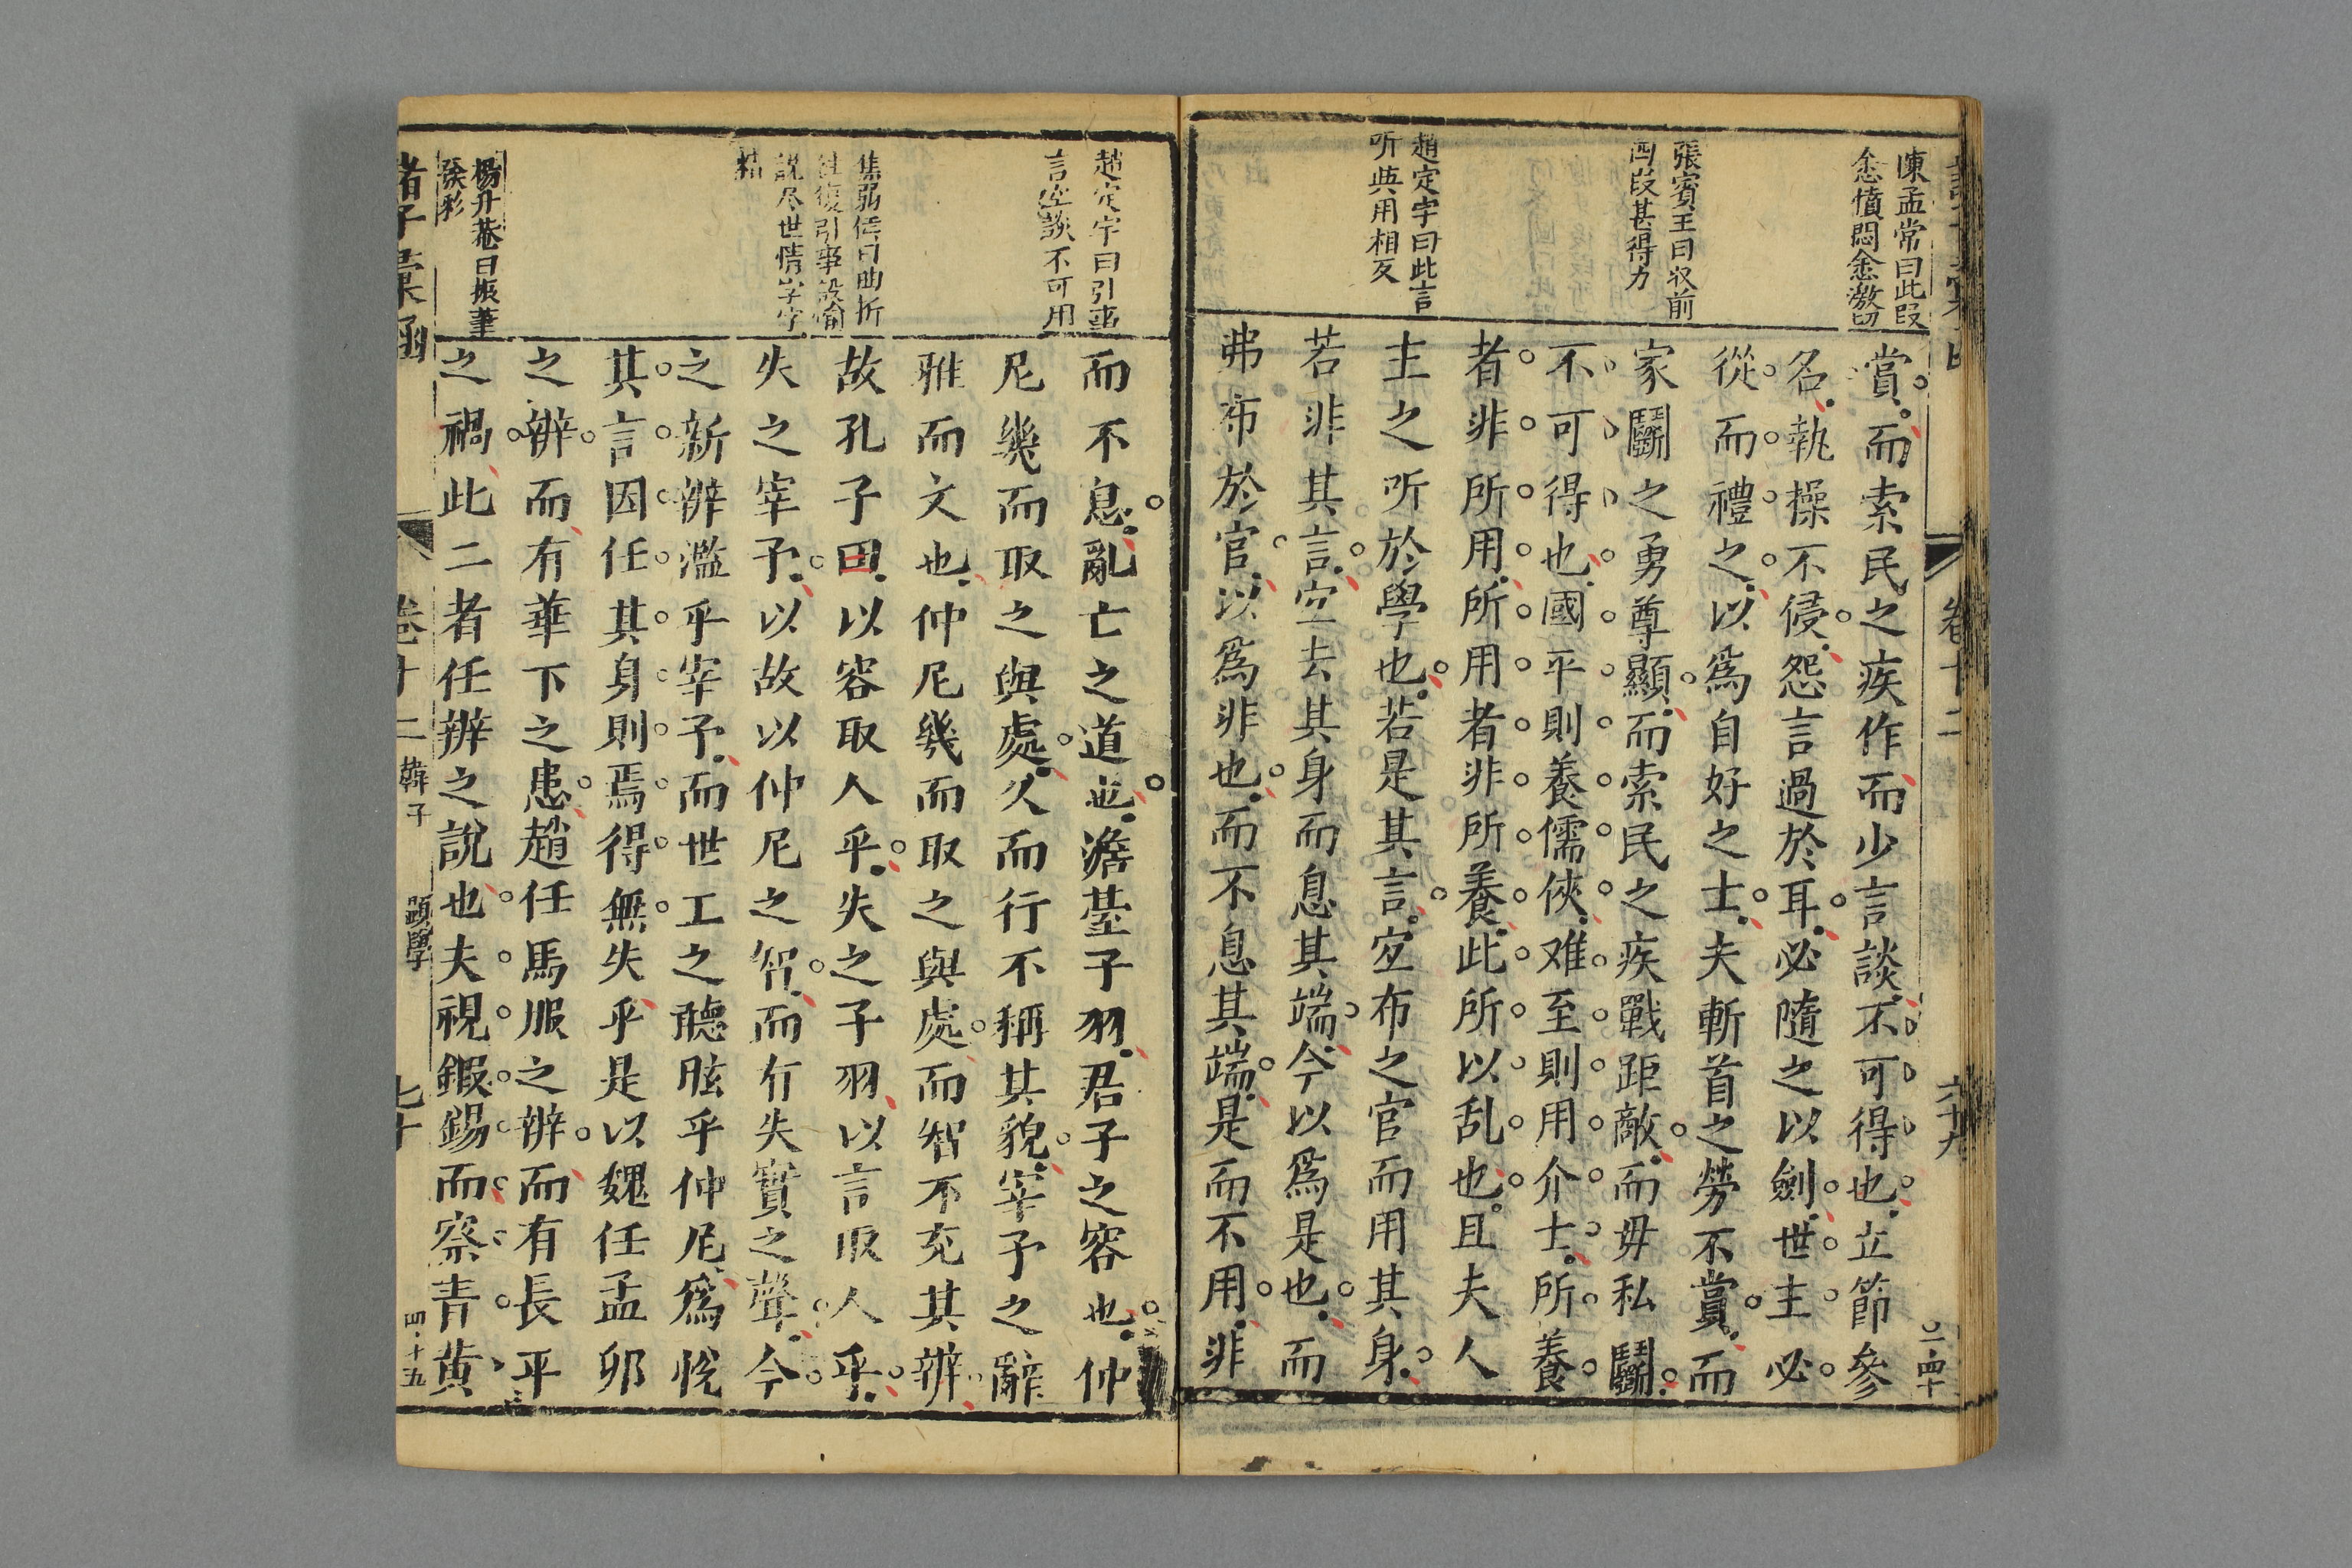 陳孟常曰此段
忿憤悶忿激切
張賓王曰收前
四段甚得力
趙定宇曰此言
听與用相反
賞而索民之疾作而少言談不可得也立節參
名執操不侵怨言過於耳必隨之以劍世主必
從而禮之以爲自好之士夫斬首之勞不賞而
家鬭之勇尊顯而索民之疾戰距敵而毋私鬭
不可得也國平則養儒俠难至則用介士所養
者非所用所用者非所養此所以乱也且夫人
主之听於學也若是其言宐布之官而用其身
若非其言宐去其身而息其端今以爲是也而
弗布於官以爲非也而不息其端是而不用非
卷十二
六十九
趙定宇曰引事
言空談不可用
焦弱侯曰曲折
往復引事設喻
説尽世情字字
精
楊升菴曰振筆
發彩
而不息亂亡之道也澹臺子羽君子之容也仲
尼幾而取之與處久而行不稱其貌宰予之辭
雅而文也仲尼幾而取之與處而智不充其辨
故孔子曰以容取人乎失之子羽以言取人乎
失之宰予以故以仲尼之智而有失實之聲今
之新辨濫乎宰予而世工之聽眩乎仲尼爲悅
其言因任其身則焉得無失乎是以魏任孟卯
之辨而有華下之患趙任馬服之辨而有長平
之禍此二者任辨之說也夫視鍜錫而察青黄
諸子彙函
卷十二
韓子
顕學
七十
四十五